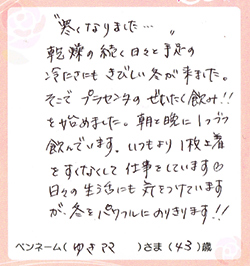 "寒くなりました…"
乾燥の続く日々と手足の
冷たさにもきびしい冬が来ました。
そこでプラセンタのぜいたく飲み!!
を始めました。朝と晩に1つブづつ
飲んでいます。いつもより1枚上着
をすくなくして仕事をしています♡
日々の生活にも気をつけています
が、冬をパワフルにのりきります!!
ペンネーム(ゆきママ)さま(43)歳